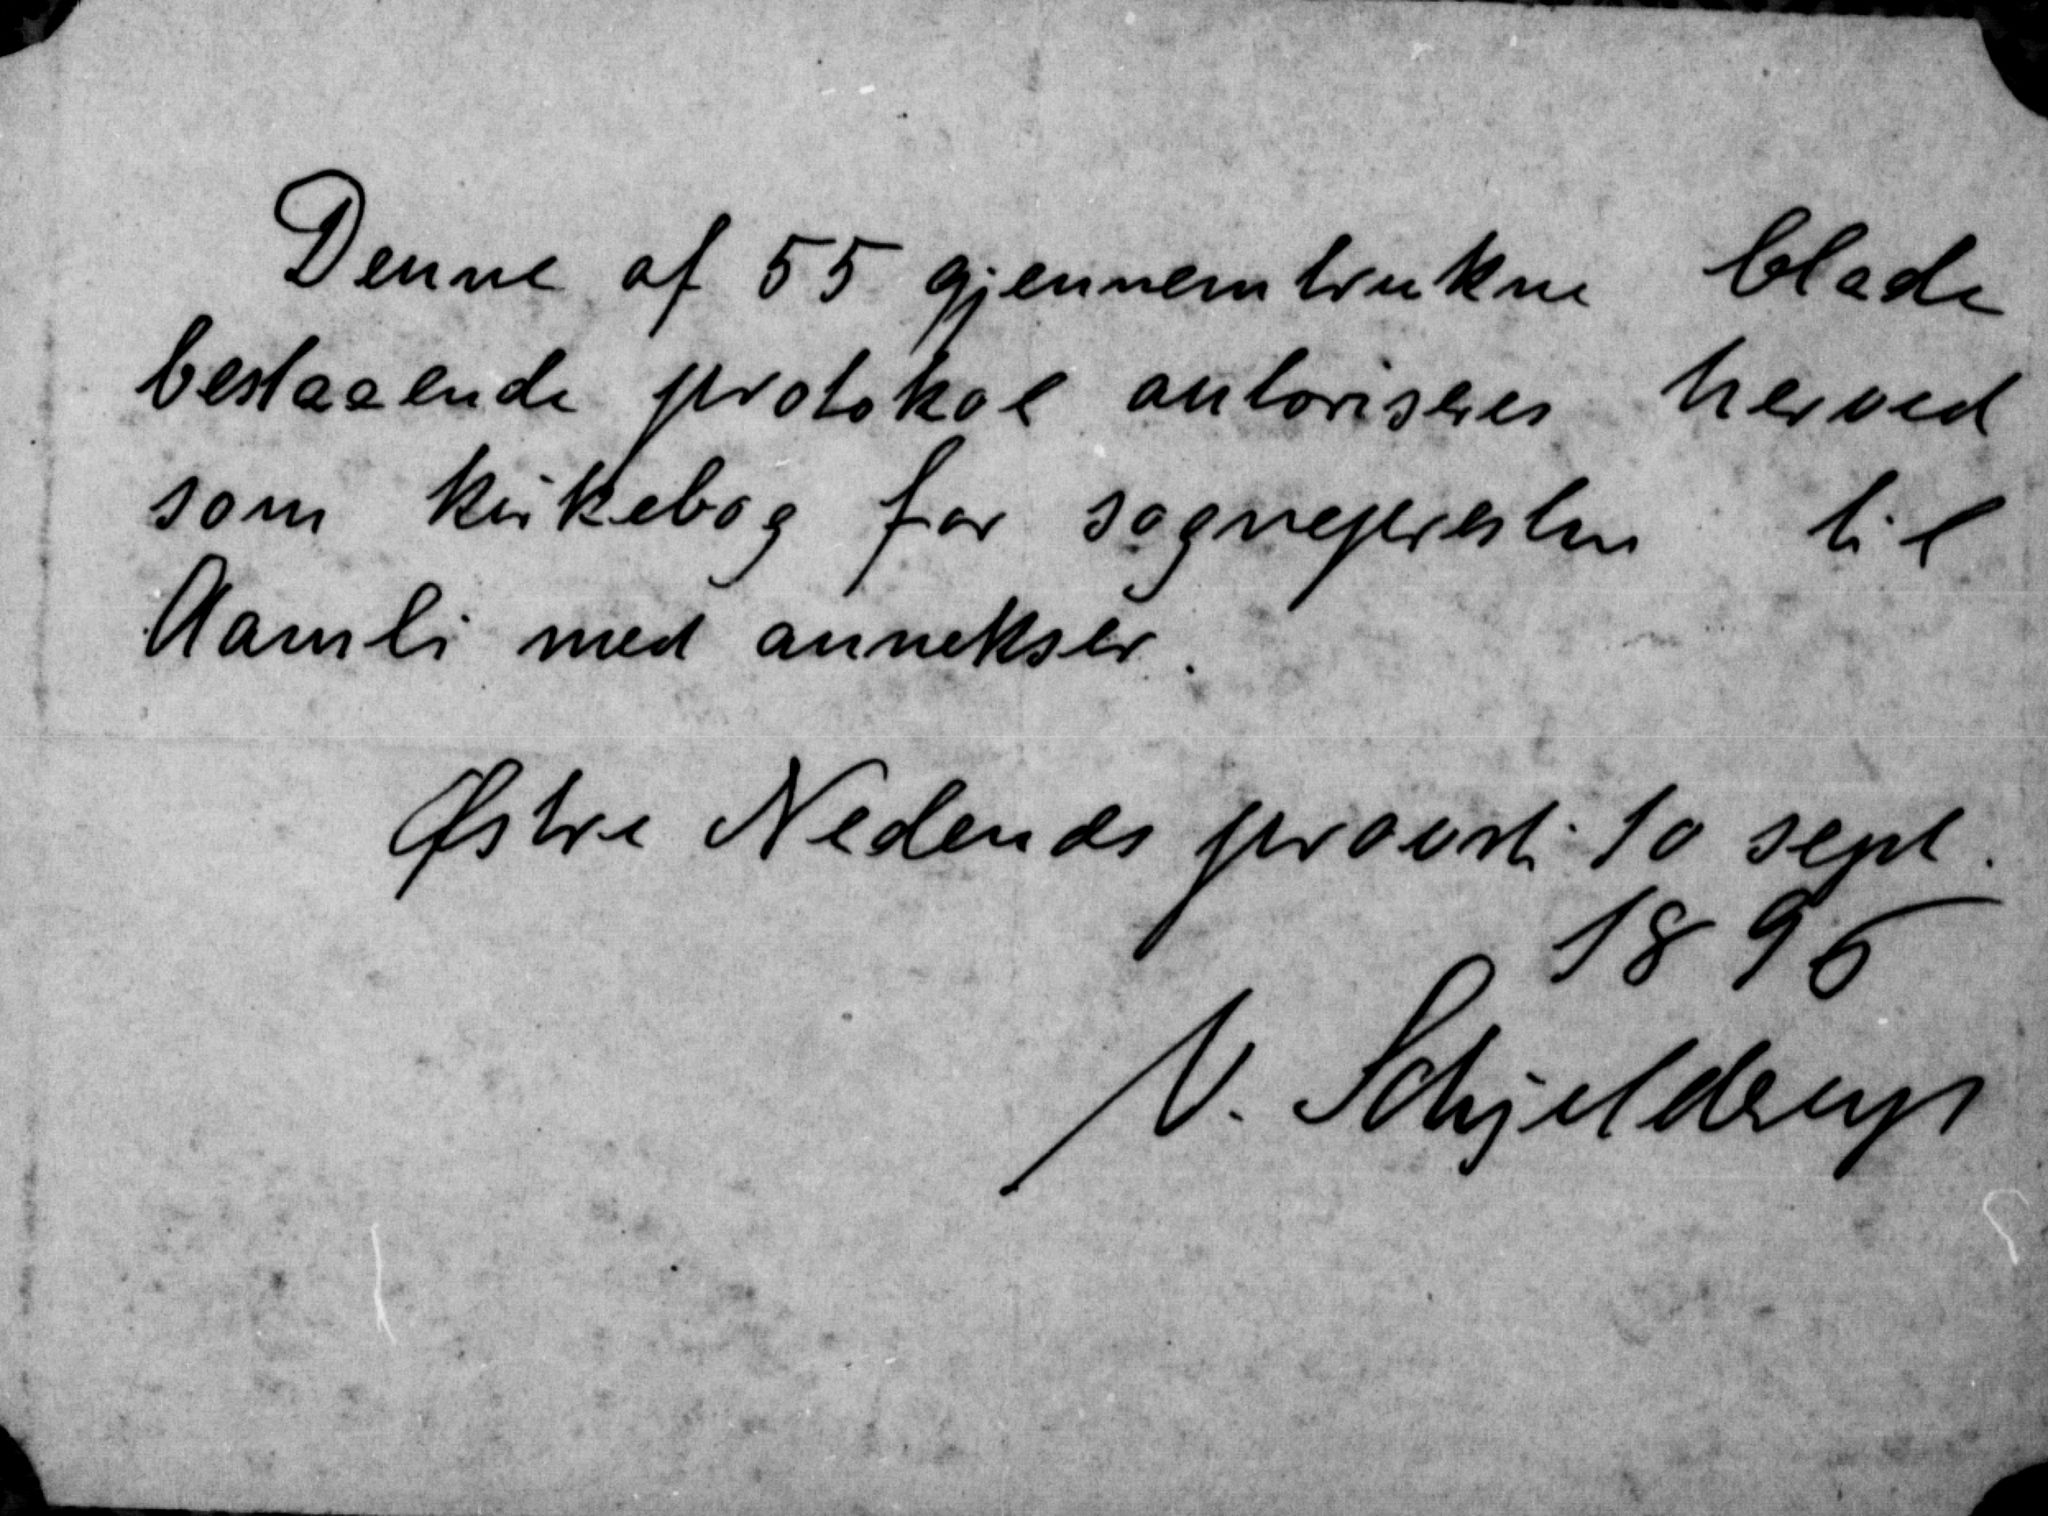 Denne af 55 gjennemtrukne blade
bestaaende protokol autoriseres herved
som kirkebog for sognepresten til
Aamli med annekser.
Østre Nedenes provsti 10 sept.
1895
N. Schjelderup